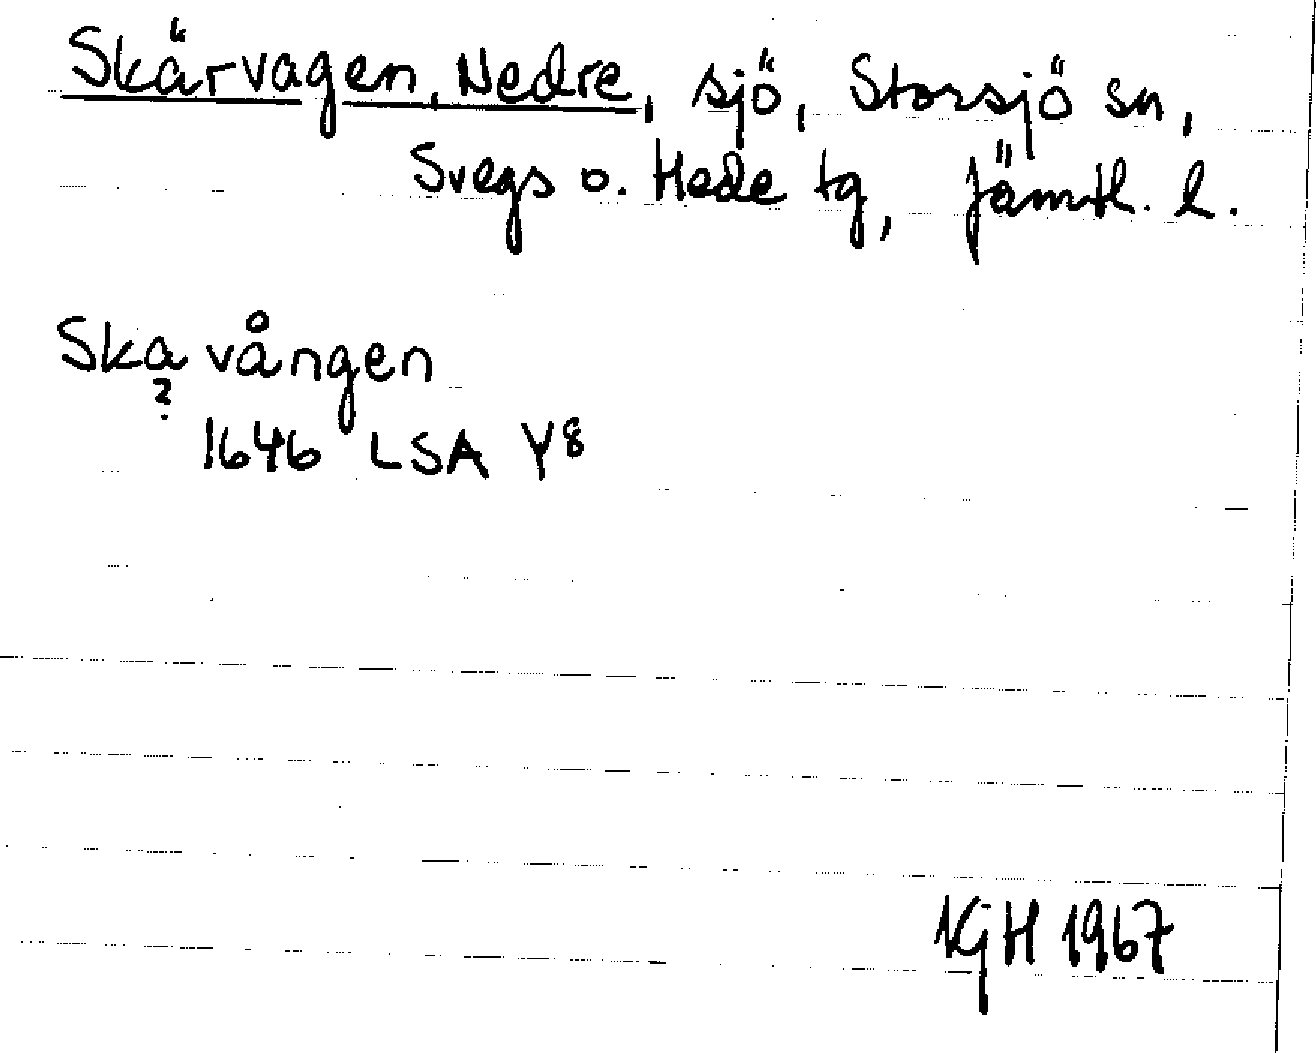 Skärvagen, Nedre, sjö, Storsjö sn,
Svegs o. Hede tg, Jämtl. l.
Ska vången
?
1646 LSA Y8
1967